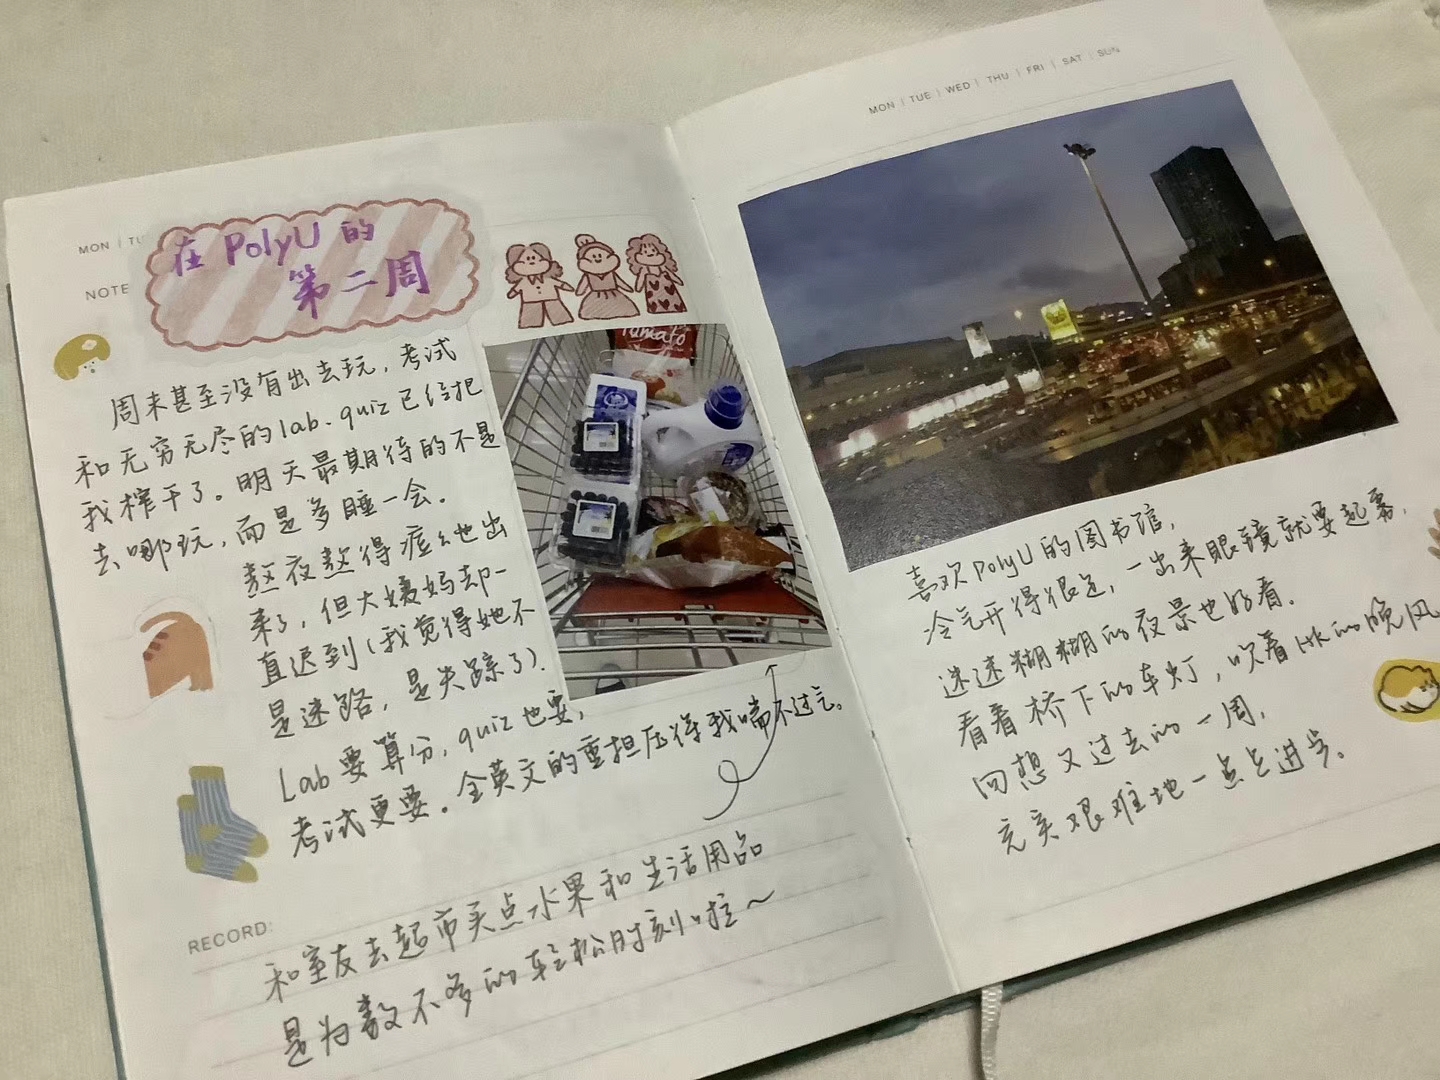 MON | TU
NOTE
在 PolyU 的
第二周
周末甚至没有出去玩，考试
和无穷无尽的lab、quiz已经把
我榨干了。明天最期待的不是
去哪玩，而是多睡一会。
熬夜熬得痘痘也出
来了，但大姨妈却一
直迟到（我觉得她不
是迷路，是失踪了）.
Lab要算分，quiz也要，
考试更要。全英文的重担压得我喘不过气。
RECORD:
和室友去超市买点水果和生活用品
是为数不多的轻松时刻啦～
Tomato
MON | TUE | WED | THU | FRI | SAT | SUN
喜欢PolyU的图书馆，
冷气开得很足，一出来眼镜就要起雾，
迷迷糊糊的夜景也好看.
看着桥下的车灯，吹着HK的晚风
回想又过去的一周，
充实艰难地一点点进步。